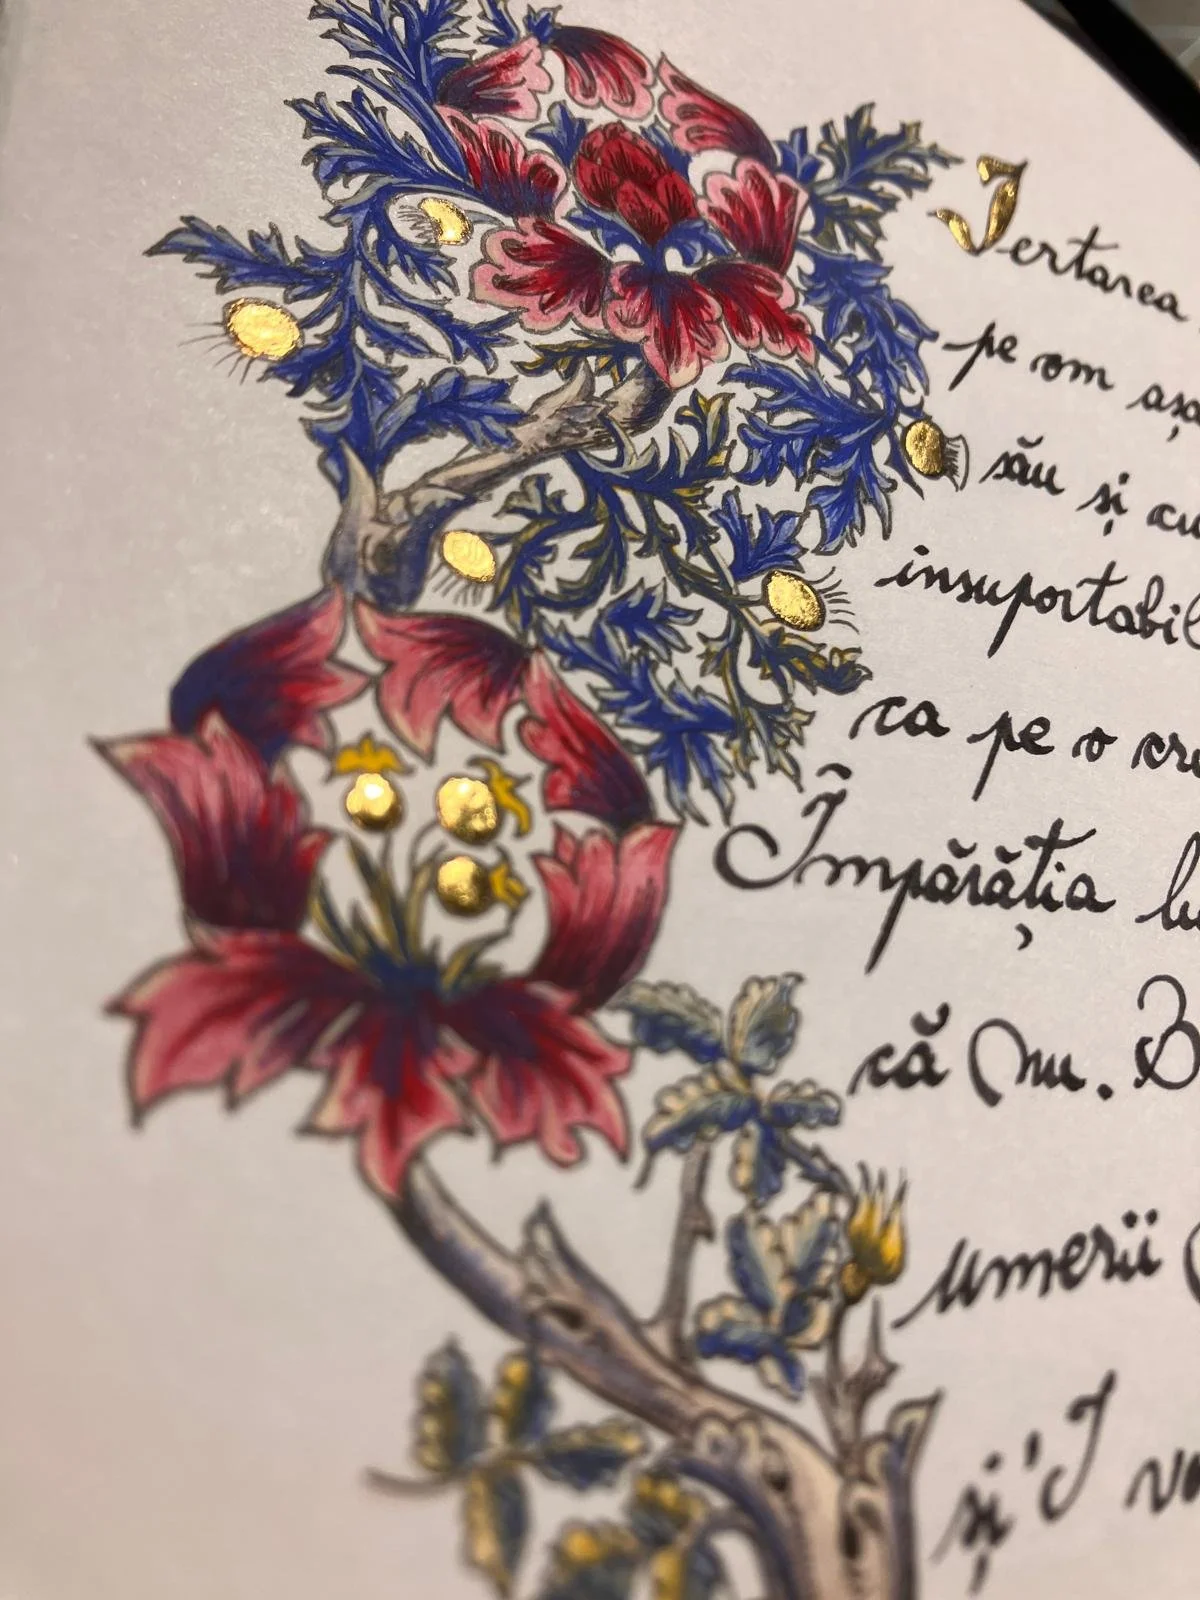 Iertarea
pe om așa
său și cu
insuportabil
ca pe o
Împărăția
că nu.
umerii
și